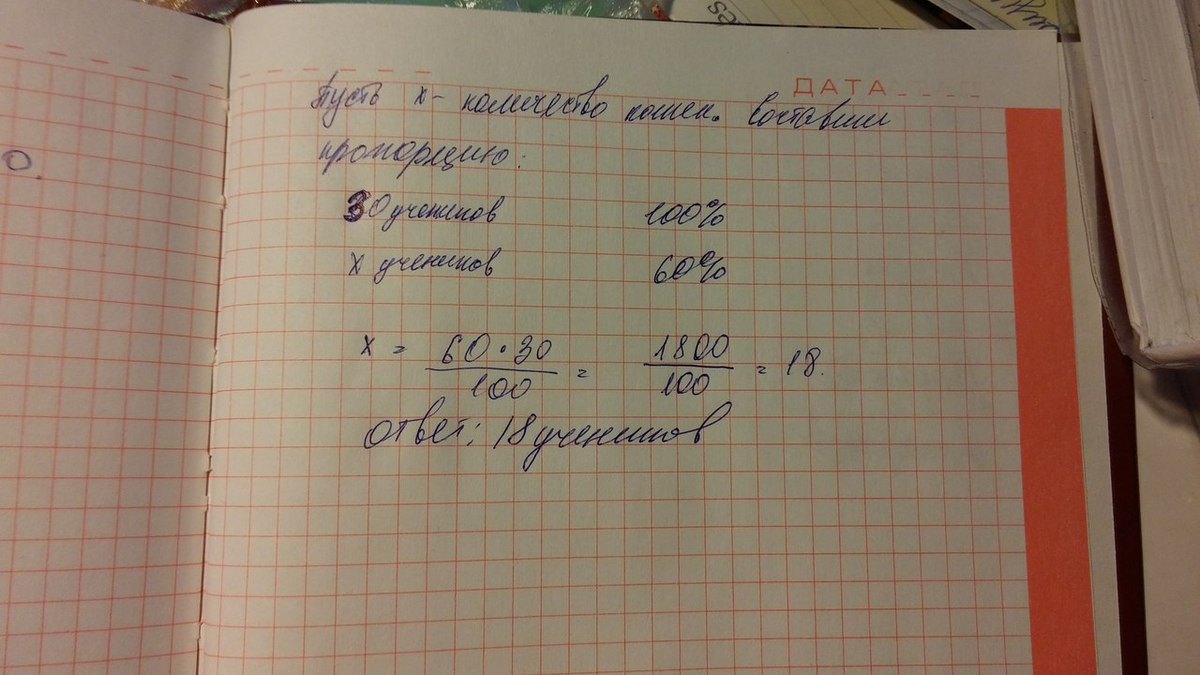 ДАТА
Пусть х - количество кошек. Составим
пропорцию:
30 учеников 100%
х учеников 60%
х = 60 · 30 / 100 = 1800 / 100 = 18.
Ответ: 18 учеников
О.